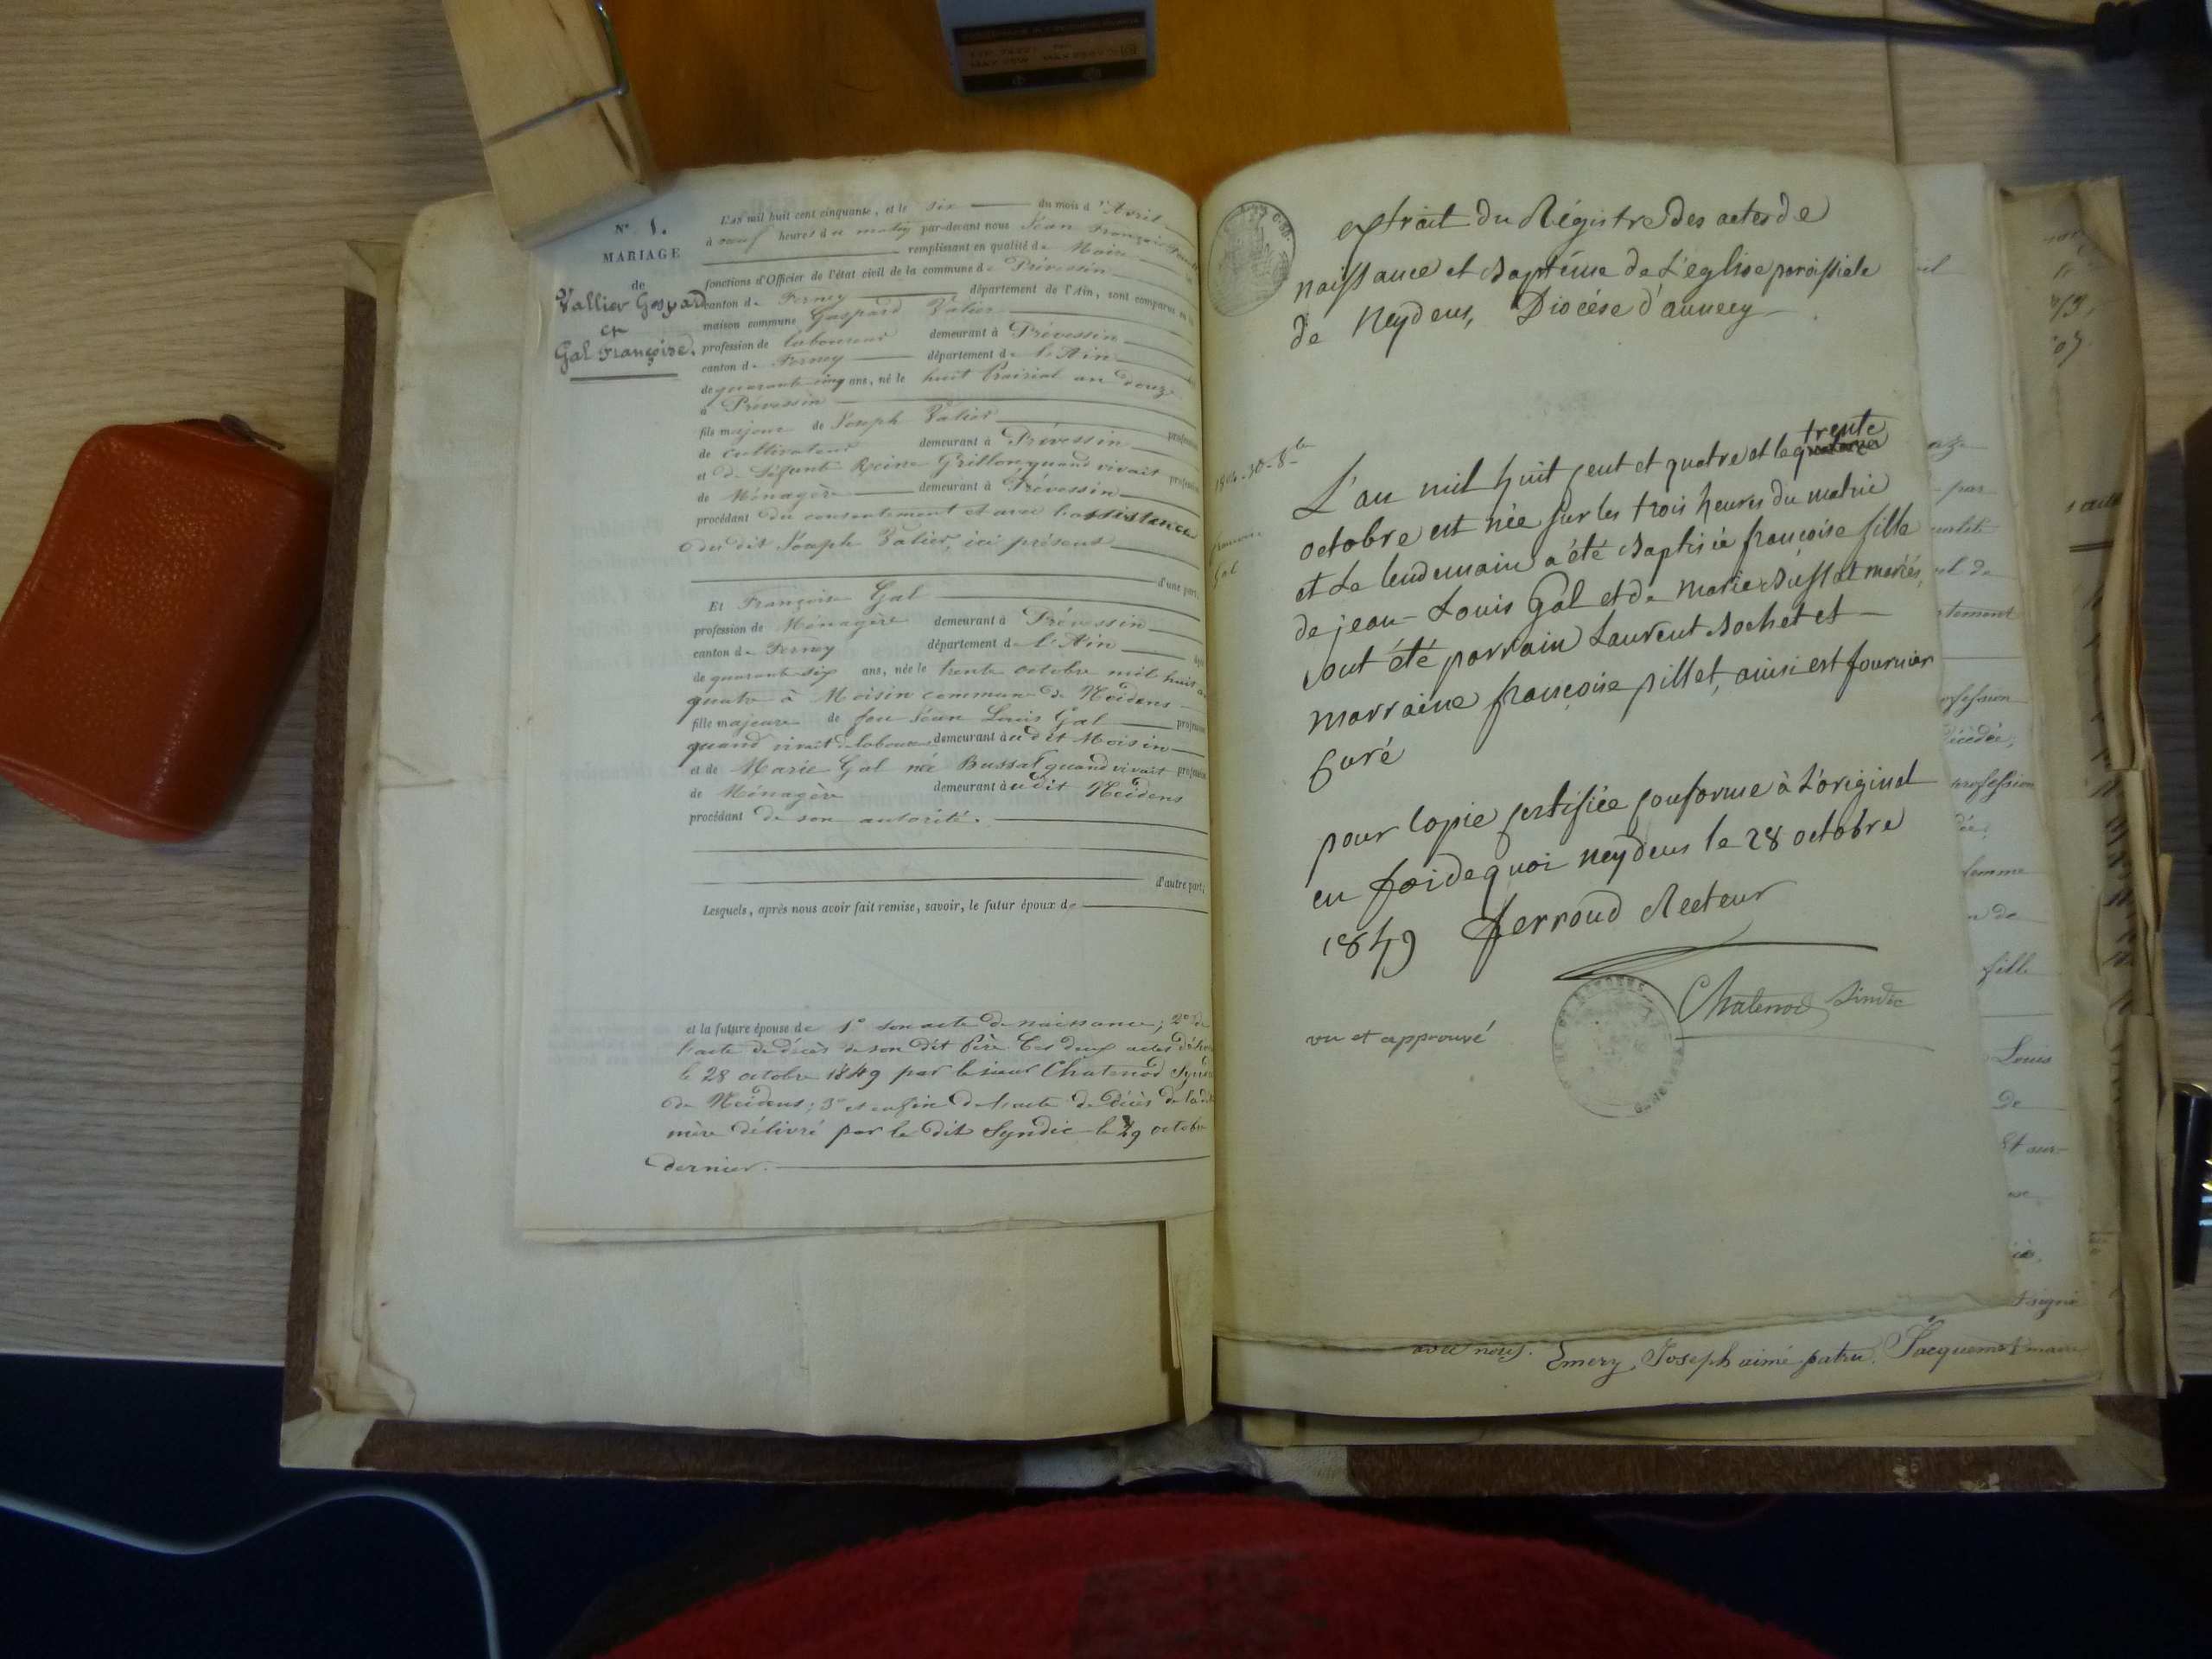 N° 1.
MARIAGE
de
Vallier Gaspard
et
Gal Françoise.
L'AN mil huit cent cinquante, et le six du mois d'Avril
à neuf heures du matin par-devant nous Jean François
remplissant en qualité de Maire
fonctions d'Officier de l'état civil de la commune de Prévessin
canton de Ferney département de l'Ain, sont comparus en la
maison commune Gaspard Valier
profession de laboureur demeurant à Prévessin
canton de Ferney département de l'Ain
de quarante cinq ans, né le huit Prairial an douze
à Prévessin
fils majeur de Joseph Valier profession
de cultivateur demeurant à Prévessin
et de défunte Reine Grillon quand vivait profession
de Ménagère demeurant à Prévessin
procédant du consentement et avec l'assistance
du dit Joseph Valier, ici présent
d'une part,
Et Françoise Gal
profession de Ménagère demeurant à Prévessin
canton de Ferney département de l'Ain
de quarante six ans, née le trente octobre mil huit
quatre à Moisin commune de Neidens
fille majeure de feu Jean Louis Gal profession
quand vivait de laboureur demeurant au dit Moisin
et de Marie Gal née Bussat quand vivait profession
de Ménagère demeurant au dit Neidens
procédant de son autorité.
d'autre part;
Lesquels, après nous avoir fait remise, savoir, le futur époux de
et la future épouse de 1° son acte de naissance; 2° de
l'acte de décès de son dit Père. Ces deux actes
le 28 octobre 1849 par le sieur Chatenod
de Neidens; 3° et enfin de l'acte de décès de la
mère délivré par le dit Syndic le 29 octobre
dernier.
extrait du Régistre des actes de
naissance et baptême de L'eglise paroissiale
de Neydens, Diocèse d'annecy
1804-30-8bre
Gal
trente
L'an mil huit cent et quatre et le quatorze
octobre est née sur les trois heures du matin
et le lendemain a été baptisée françoise fille
de jean-Louis Gal et de marie Bussat mariés,
ont été parrain Laurent Bochet et
marraine françoise pillet, ainsi est fournier
Curé
pour Copie certifiée conforme à L'original
en foi de quoi neydens le 28 octobre
1849 Ferroud Recteur
vu et approuvé
Chatenod Sindic
par
profession
décédée;
profession
femme
de
fille
Louis
De
signé
avec nous. Emery, Joseph aimé patru. Jacquemet maire